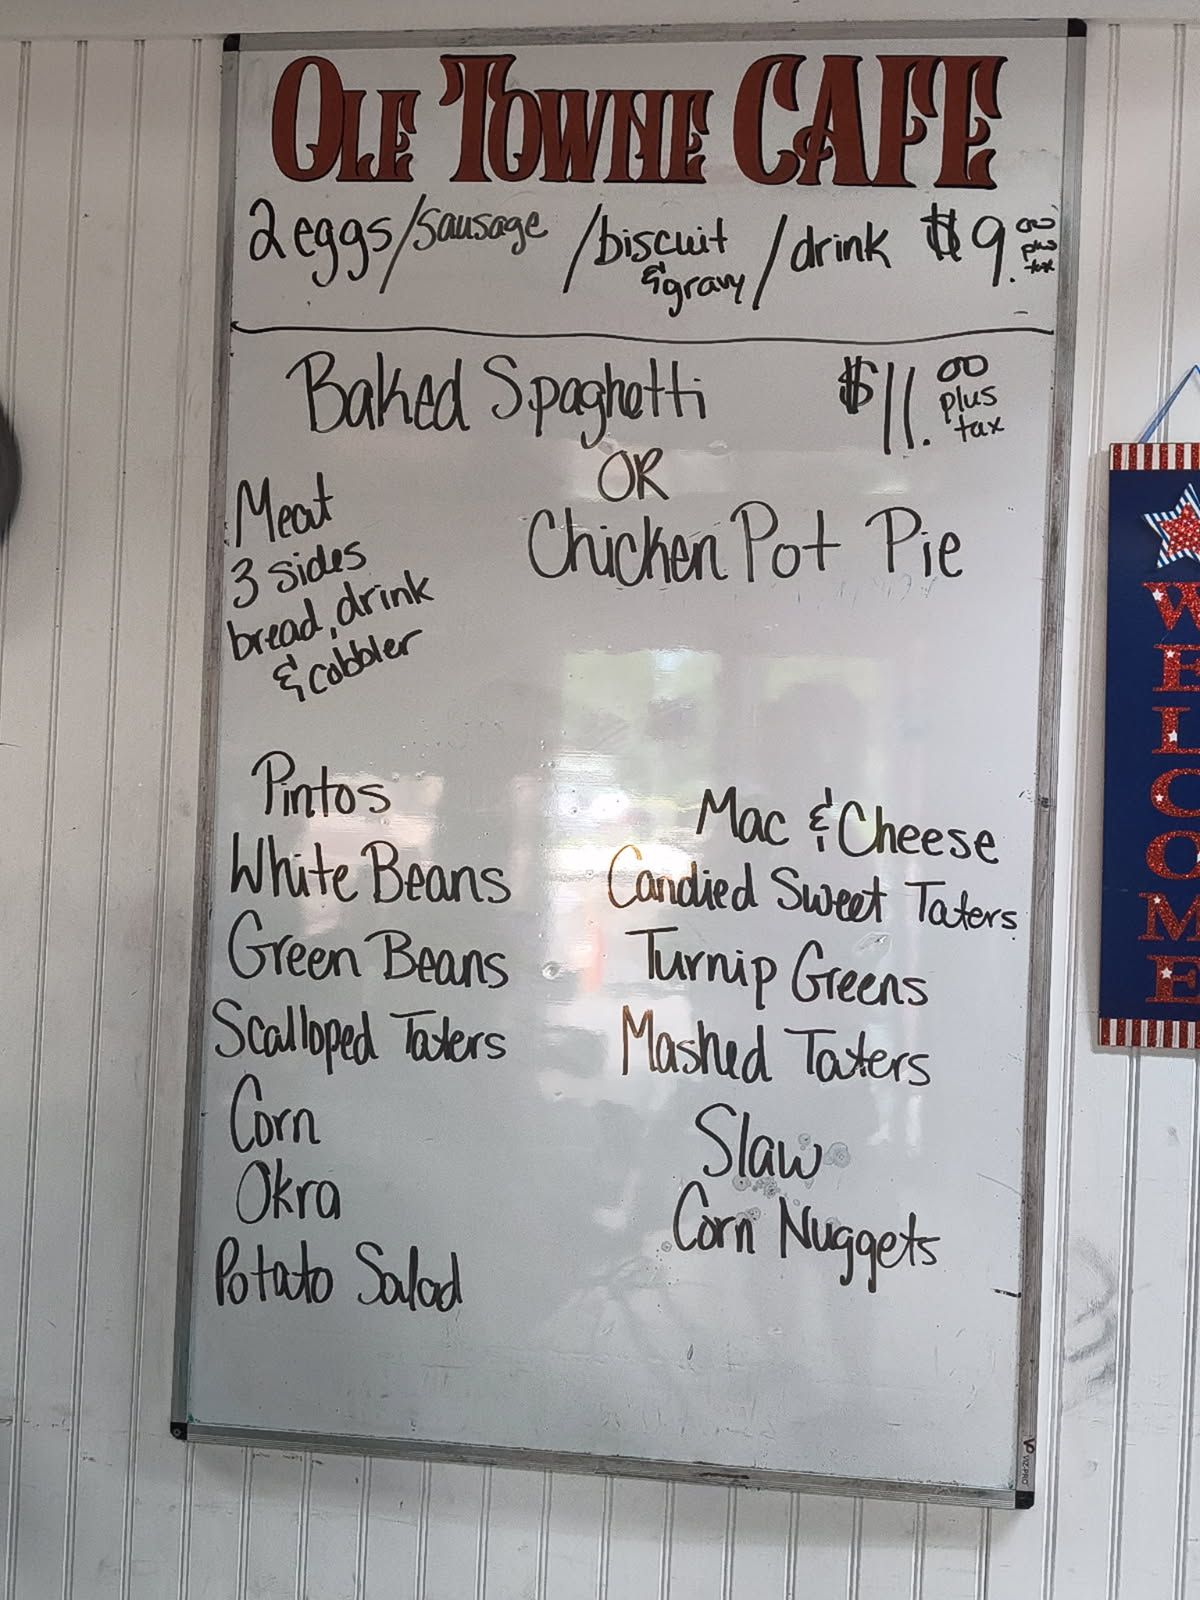 OLE TOWNE CAFE
2 eggs/sausage /biscuit & gravy/drink $9.00 plus tax
Baked Spaghetti $11.00 plus tax
OR
Chicken Pot Pie
Meat
3 sides
bread, drink
& cobbler
Pintos
White Beans
Green Beans
Scalloped Taters
Corn
Okra
Potato Salad
Mac & Cheese
Candied Sweet Taters
Turnip Greens
Mashed Taters
Slaw
Corn Nuggets
WELCOME
VIZ-PRO